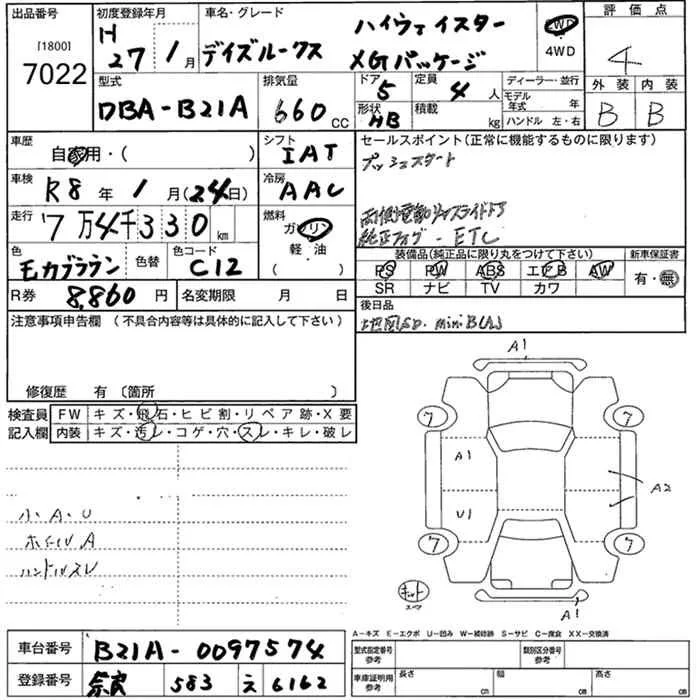 出品番号
[1800]
7022
初度登録年月
H
27年 1月
車名・グレード
デイズルークス
ハイウェイスター
XGパッケージ
2WD
4WD
評価点
4
型式
DBA-B21A
排気量
660 CC
ドア
5
定員
4 人
形状
HB
積載
kg
ディーラー・並行
モデル
年式 年
ハンドル 左・右
外装 内装
B B
車歴
自家用・( )
シフト
IAT
車検
R8年 1月(24日)
冷房
AAC
走行
7万4千330km
燃料
ガソリン
軽・油
色
モカブラウン
色替
色コード
C12
R券 8,860円
名変期限 月 日
セールスポイント(正常に機能するものに限ります)
プッシュスタート
両側電動スライドドア
純正フォグ・ETC
装備品(純正品に限り丸をつけて下さい)
新車保証書
PS PW ABS エアB AW
SR ナビ TV カワ
有・無
後日品
地図SD. miniB(A)
注意事項申告欄(不具合内容等は具体的に記入して下さい)
修復歴 有〔箇所 〕
検査員
記入欄
FW キズ・飛石・ヒビ割・リペア跡・X要
内装 キズ・汚レ・コゲ・穴・スレ・キレ・破レ
小・A・U
ホイールA
ハンドルスレ
A1
7 7
A1
A2
U1
7 7
キット
A1
A=キズ E=エクボ U=凹み W=補修跡 S=サビ C=腐食 XX=交換済
車台番号 B21A-0097574
登録番号 奈良 583 え 6162
型式指定番号
参考
類別区分番号
参考
車庫証明用
参考
長さ cm
幅 cm
高さ cm